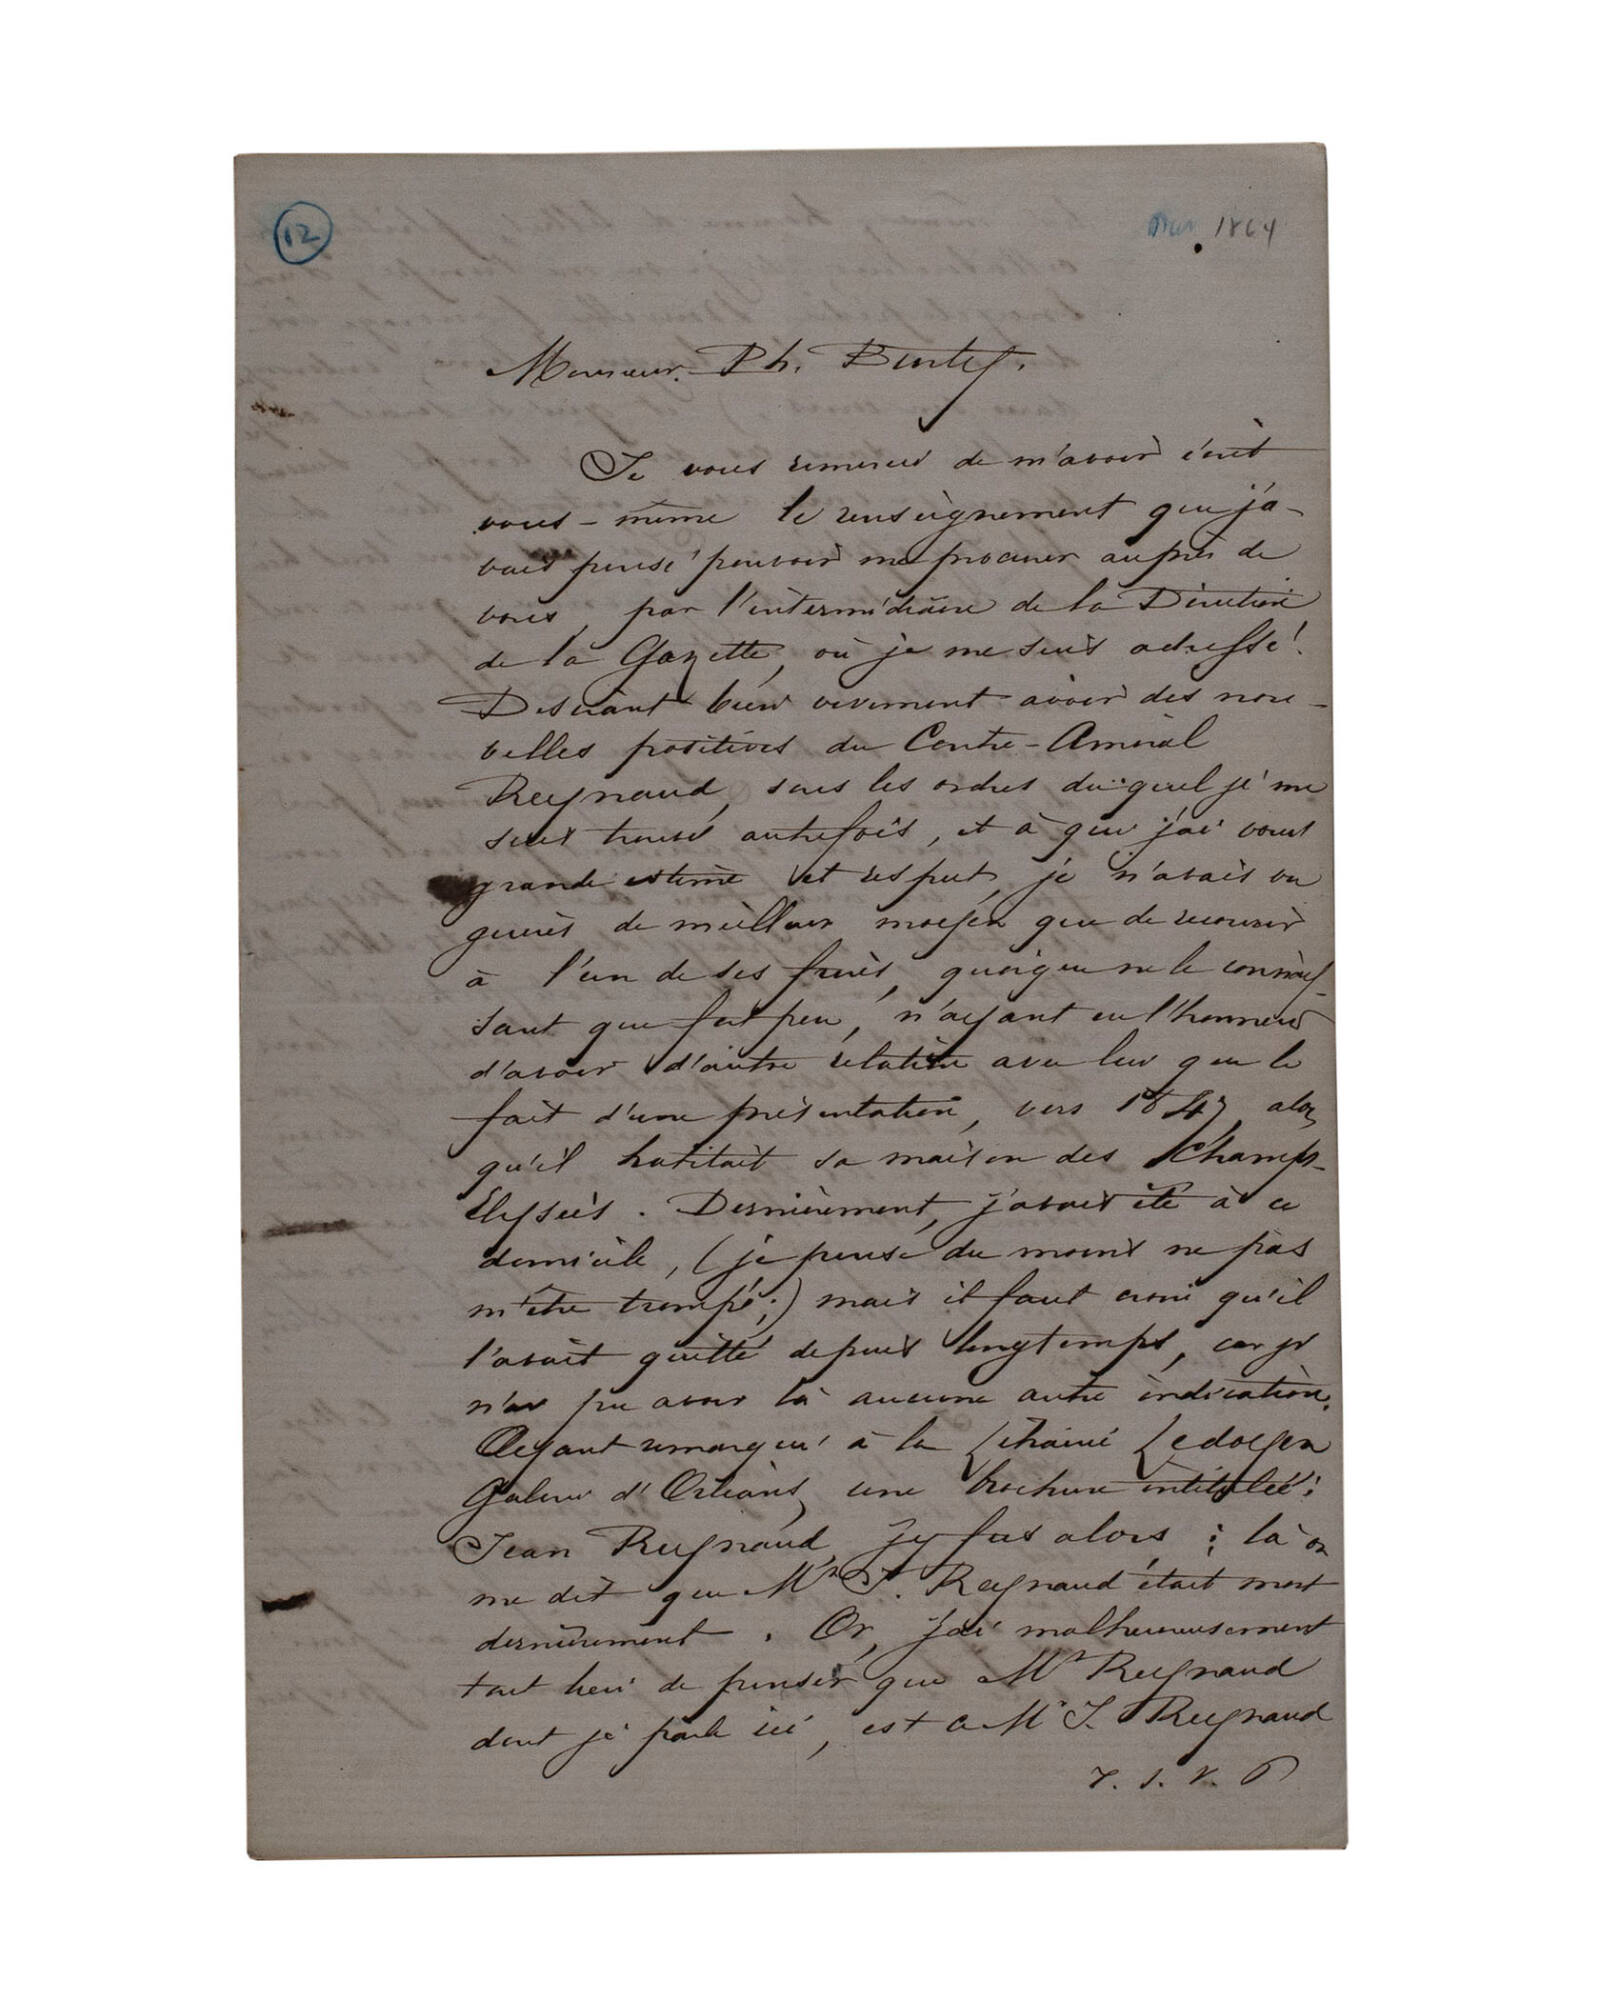 12
1864
Monsieur Ph. Burty.
Je vous remercie de m'avoir écrit
vous-même le renseignement que j'a-
vais pensé pouvoir me procurer auprès de
vous, par l'intermédiaire de la Direction
de la Gazette, où je me suis adressé.
Désirant bien vivement avoir des nou-
velles positives du Contre-Amiral
Reynaud, sous les ordres duquel je me
suis trouvé autrefois, et à qui j'ai voué
grande estime et respect, je n'avais vu
guères de meilleur moyen que de recourir
à l'un de ses frères, quoique ne le connais-
sant que fort peu, n'ayant eu l'honneur
d'avoir d'autre relation avec lui que le
fait d'une présentation, vers 1847, alors
qu'il habitait sa maison des Champs-
Elysées. Dernièrement, j'avais été à ce
domicile, (je pense du moins ne pas
m'être trompé;) mais il faut croire qu'il
l'avait quitté depuis longtemps, car je
n'ai pu avoir là aucune autre indication.
Ayant remarqué à la Librairie Ledoyen
Galerie d'Orléans, une brochure intitulée:
Jean Reynaud, j'y fus alors: là on
me dit que Mr J. Reynaud était mort
dernièrement. Or, j'ai malheureusement
tout lieu de penser que Mr Reynaud
dont je parle ici, est ce Mr J. Reynaud
T. S. V. P